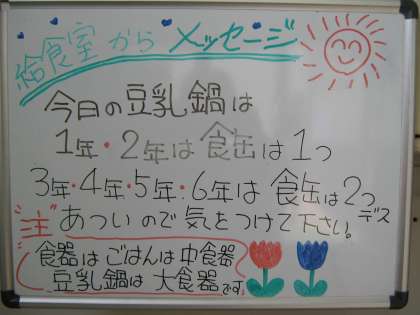 給食室からメッセージ
今日の豆乳鍋は
1年・2年は食缶は1つ
3年・4年・5年・6年は食缶は2つデス
"注"あついので気をつけて下さい。
食器はごはんは中食器
豆乳鍋は大食器です